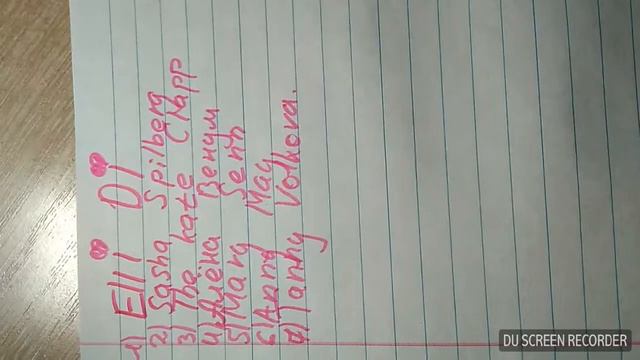 1) Elli Di
2) Sasha Spilberg
3) The kate Clapp
4) Алёна Венум
5) Mary Senn
6) Anny May
7) Tanny Volkova.
DU SCREEN RECORDER